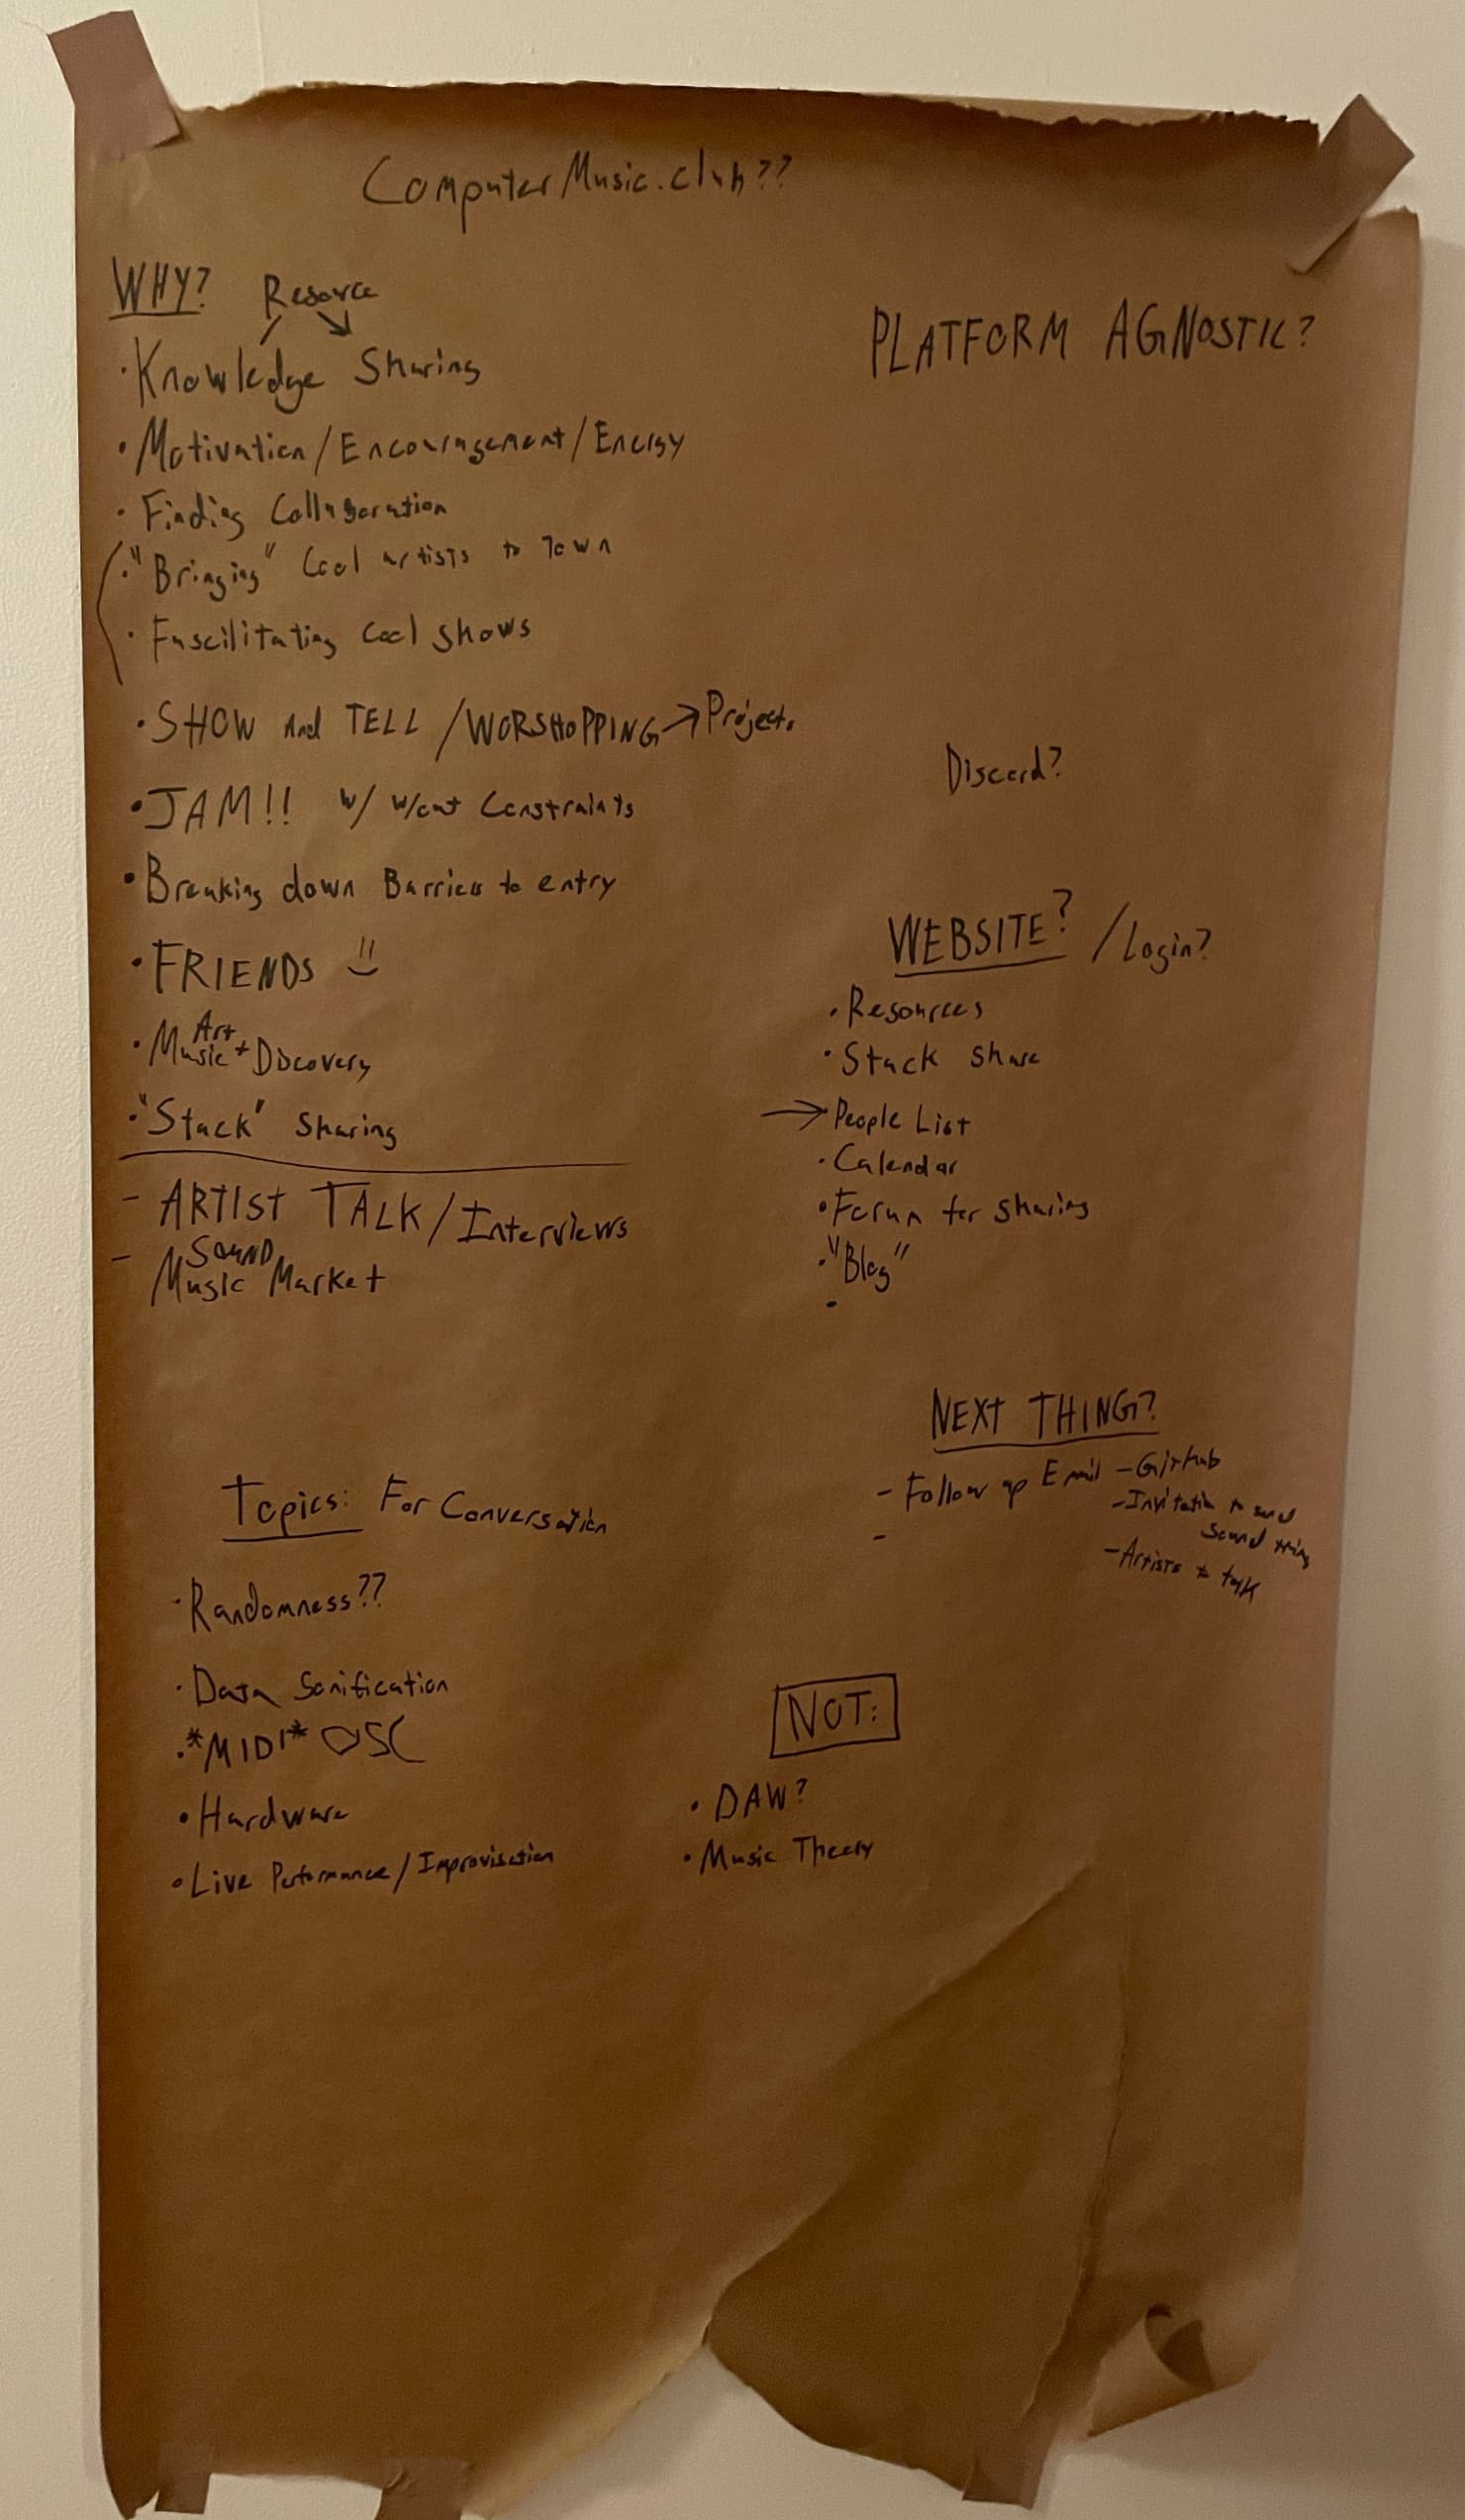 ComputerMusic.club??
WHY?
Resource
• Knowledge Sharing
• Motivation/Encouragement/Energy
• Finding Collaboration
• "Bringing" Cool artists to Town
• Fascilitating Cool Shows
• SHOW And TELL /WORSHOPPING → Projects
• JAM!! w/ w/out Constraints
• Breaking down Barriers to entry
• FRIENDS
Art
• Music + Discovery
• "Stack" Sharing
- ARTIST TALK/Interviews
SOUND
- Music Market
Topics: For Conversation
• Randomness??
• Data Sonification
• *MIDI* OSC
• Hardware
• Live Performance/Improvisation
PLATFORM AGNOSTIC?
Discord?
WEBSITE? /Login?
• Resources
• Stack Share
→ People List
• Calendar
• Forum for Sharing
• "Blog"
•
NEXT THING?
- Follow up Email
- GitHub
- Invitation to send
Sound thing
- Artists to talk
-
NOT:
• DAW?
• Music Theory